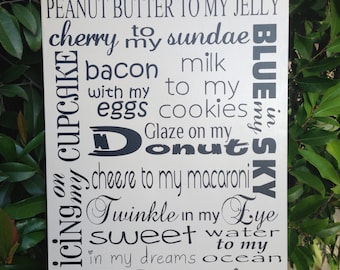 PEANUT BUTTER TO MY JELLY
cherry to my sundae
bacon with my eggs
milk to my cookies
BLUE in my SKY
icing on my CUPCAKE
Glaze on my Donut
cheese to my macaroni
Twinkle in my Eye
sweet in my dreams
water to my ocean